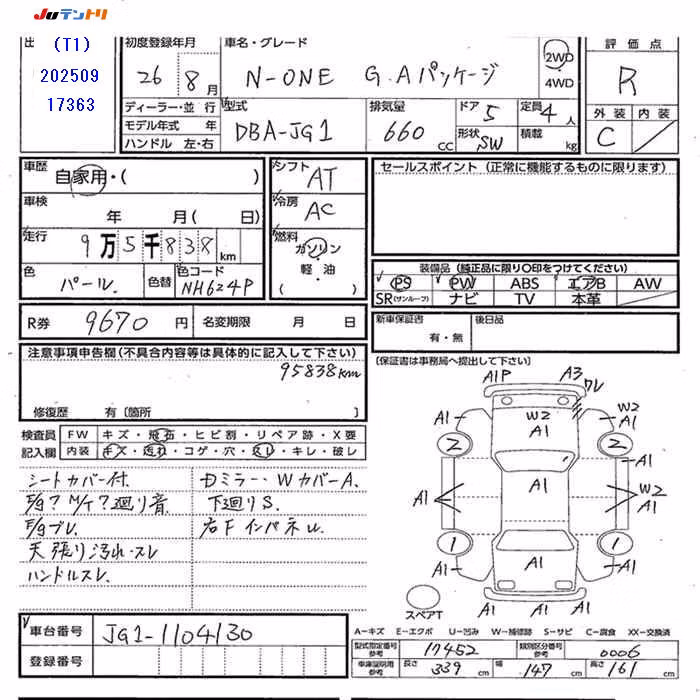 JUテントリ
出 (T1)
202509
17363
初度登録年月 26 年 8 月
車名・グレード N-ONE G.Aパッケージ
2WD
4WD
評価点 R
外装 内装
C
ディーラー・並行
モデル年式 年
ハンドル 左・右
型式 DBA-JG1
排気量 660 cc
ドア 5
形状 SW
定員 4 人
積載 kg
車歴 自家用・( )
車検 年 月( 日)
走行 9万5千838 km
色 パール. 色替 色コード NH624P
シフト AT
冷房 AC
燃料 ガソリン
・軽・油・
( )
セールスポイント (正常に機能するものに限ります)
装備品 (純正品に限り○印をつけてください)
PS PW ABS エアB AW
SR(サンルーフ) ナビ TV 本革
R券 9670 円 名変期限 月 日
新車保証書 有・無
後日品
(保証書は事務局へ提出して下さい)
注意事項申告欄(不具合内容等は具体的に記入して下さい)
95838km
修復歴 有〔箇所 〕
検査員 FW キズ・飛石・ヒビ割・リペア跡・X要
記入欄 内装 キズ・汚れ・コゲ・穴・スレ・キレ・破レ
シートカバー付.
E/g? M/T? 廻り音
E/gブレ.
天張り汚れ・スレ
ハンドルスレ.
Dミラー・WカバーA.
下廻りS.
右Fインパネル.
A1P A3 ワレ
A1 W2 A1 W2 A1
2 2
A1 A1
A1 A1 W2 A1
1 1
A1 A1 A1
A1 A1 A1
スペアT
車台番号 JG1-1104130
登録番号
A−キズ E−エクボ U−凹み W−補修跡 S−サビ C−腐食 XX−交換済
型式指定番号 参考 17452 類別区分番号 参考 0006
車庫証明用 参考 長さ 339 cm 幅 147 cm 高さ 161 cm